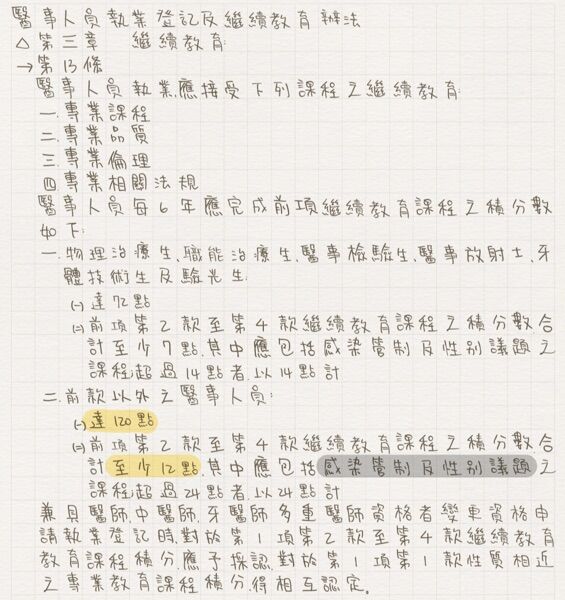 醫事人員執業登記及繼續教育辦法
△第三章 繼續教育
→第13條
醫事人員執業,應接受下列課程之繼續教育:
一.專業課程
二.專業品質
三.專業倫理
四.專業相關法規
醫事人員每6年應完成前項繼續教育課程之積分數
如下:
一.物理治療生、職能治療生、醫事檢驗生、醫事放射士、牙
體技術生及驗光生:
(一)達72點
(二)前項第2款至第4款繼續教育課程之積分數,合
計至少7點,其中應包括感染管制及性別議題之
課程;超過14點者,以14點計
二.前款以外之醫事人員:
(一)達120點
(二)前項第2款至第4款繼續教育課程之積分數,合
計至少12點,其中應包括感染管制及性別議題之
課程;超過24點者,以24點計
兼具醫師、中醫師、牙醫師多重醫師資格者變更資格申
請執業登記時,對於第1項第2款至第4款繼續教育
教育課程積分,應予採認;對於第1項第1款性質相近
之專業教育課程積分,得相互認定。